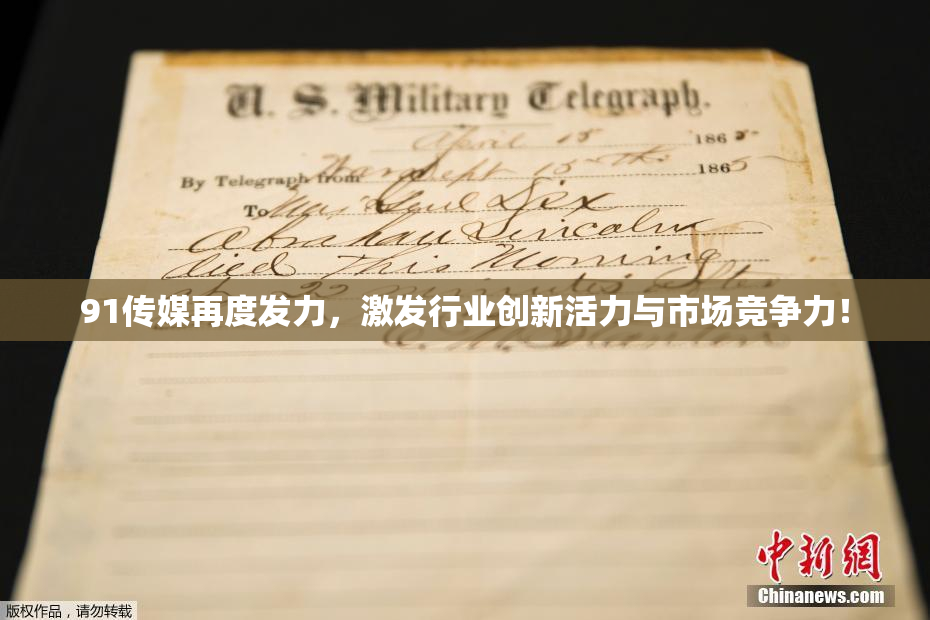 U. S. Military Telegraph.
April 15 1865
By Telegraph from War Dept 15th 1865
To Maj Genl Dix
Abraham Lincoln
died This Morning
at 22 minutes after
91传媒再度发力，激发行业创新活力与市场竞争力！
E. M. Stanton
中新网
Chinanews.com
版权作品，请勿转载